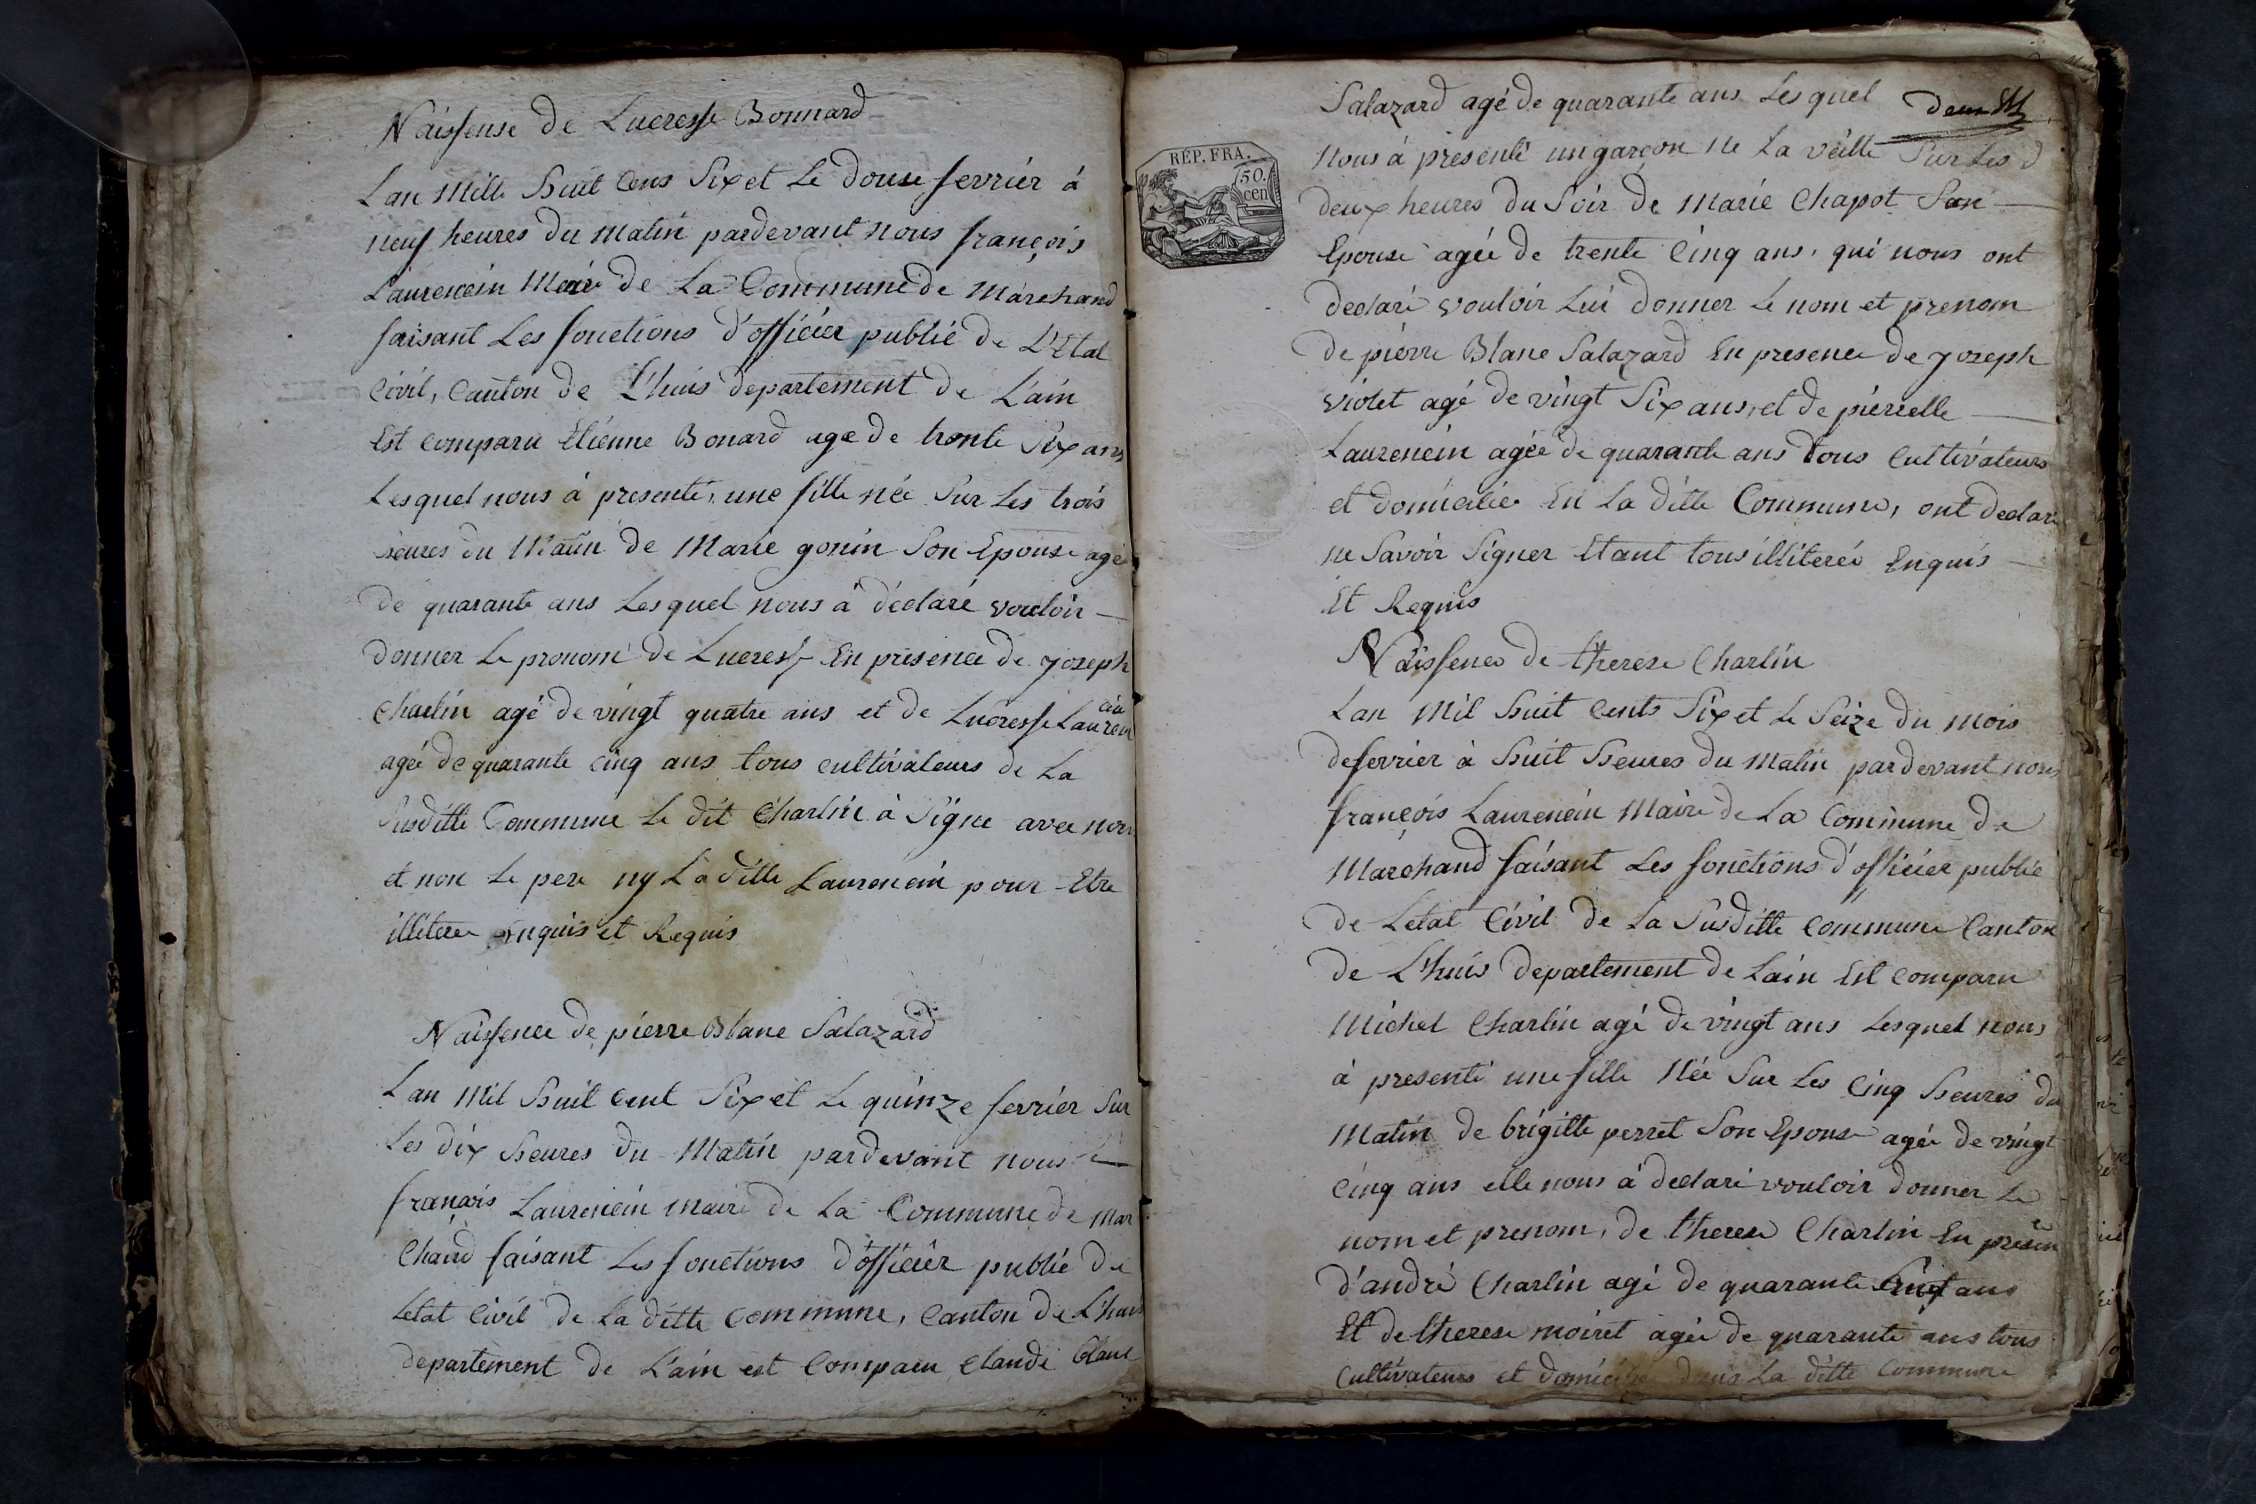 Naissense de Lucresse Bonnard
Lan Mille huit Cens Six et Le douse fevrier à
neuf heures du matin pardevant nous françois
Laurencin Maire de La Commune de Marchand
faisant Les fonctions d'officier public de L'Etat
Civil, Canton de L'huis departement de L'ain
Est comparu Etienne Bonard age de trente Six ans
Lesquel nous à presenté, une fille née Sur Les trois
heures du Matin de Marie gonin Son Epouse agé
de quarante ans Lesquel nous à déclaré vouloir
donner Le pronom de Lucresse En presence de joseph
Charlin agé de vingt quatre ans et de Lucresse Laurencin
agée de quarante cinq ans tous cultivateurs de La
Susditte Commune Le dit Charlin à Signe avec nous
et non Le pere ny La ditte Laurencin pour Etre
illiteré enquis et Requis
Naissence de pierre Blanc Salazard
Lan Mil huit cent Six et Le quinze fevrier Sur
Les dix heures du Matin pardevant nous
françois Laurencin maire de La Commune de Mar
Chand faisant Les fonctions d'officier public de
Letat Civil de La ditte Commune, Canton de L'huis
departement de L'ain est Comparu Claude Blanc
RÉP. FRA.
50.
cen
Salazard agé de quarante ans Lesquel
deux
nous à presenté un garçon né La veille Sur Les
deux heures du Soir de Marie Chapot Son
Epouse agée de trente Cinq ans, qui nous ont
declaré vouloir Lui donner Le nom et prenom
de pierre Blanc Salazard En presence de joseph
violet agé de vingt Six ans, et de pierrette
Laurencin agée de quarante ans tous Cultivateurs
et domicilié En La ditte Commune, ont declaré
ne Savoir Signer Etant tous illiteréé Enquis
Et Requis
Naissence de therese Charlin
Lan Mil huit Cents Six et Le Seize du mois
de fevrier à huit heures du Matin pardevant nous
françois Laurencin Maire de La Commune de
Marchand faisant Les fonctions d'officier public
de Letat Civil de La Susditte Commune Canton
de L'huis departement de Lain Est Comparu
Michel Charlin agé de vingt ans Lesquel nous
à presenté une fille Née Sur Les Cinq heures du
Matin de brigitte perret Son Epouse agée de vingt
Cinq ans elle nous à declaré vouloir donner Le
nom et prenom, de therese Charlin En presen
d'andré Charlin agé de quarante ans
Et de therese moiret agée de quarante ans tous
Cultivateurs et domicilié dans La ditte Commune